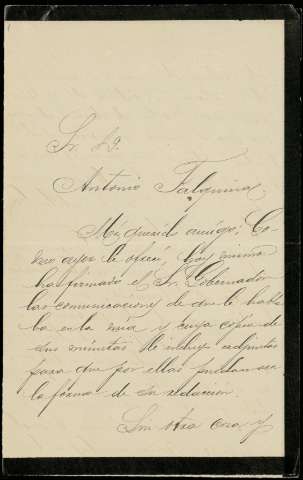 Sr. D.
Antonio Falquina
Mi querido amigo: Co-
mo ayer le ofrecí, hoy mismo
ha firmado el Sr. Gobernador
las comunicaciones de que le habla-
ba en la mía y cuya copia de
dos minutas le incluyo adjuntas
para que por ellas puedan ver
la forma de su redacción.
Sin otra cosa y